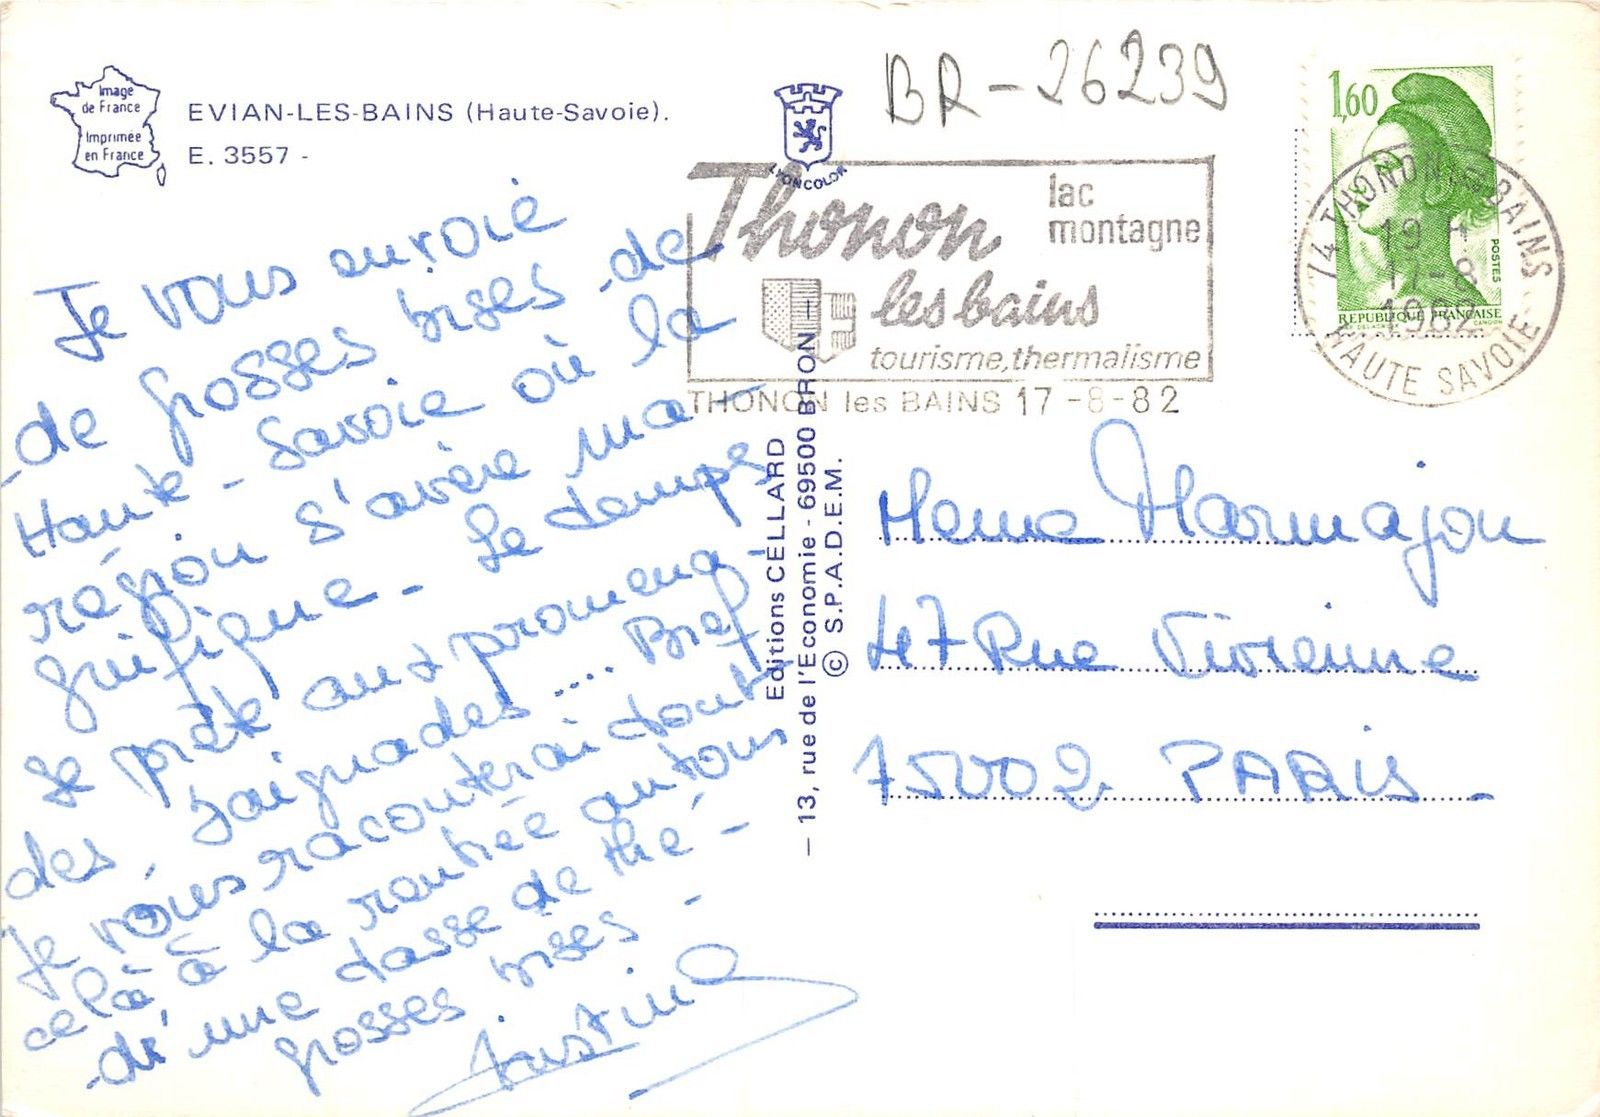 Image
de France
Imprimée
en France
EVIAN-LES-BAINS (Haute-Savoie).
E. 3557 -
LYONCOLOR
BR-26239
Thonon
les bains
lac
montagne
tourisme, thermalisme
THONON les BAINS 17-8-82
1,60
POSTES
REPUBLIQUE FRANÇAISE
74 THONON LES BAINS
19 H
17-8
1982
HAUTE SAVOIE
Je vous envoie
de grosses bises de
Haute-Savoie où la
région s'avère ma-
gnifique - Le temps
se prête aux promena-
des, baignades.... Bref
Je vous raconterai tout
celà à la rentrée autour
d'une tasse de thé -
grosses bises -
Christine
Editions CELLARD
— 13, rue de l'Economie - 69500 BRON —
© S.P.A.D.E.M.
Meme Marmajou
47 Rue Vivienne
75002 PARIS -